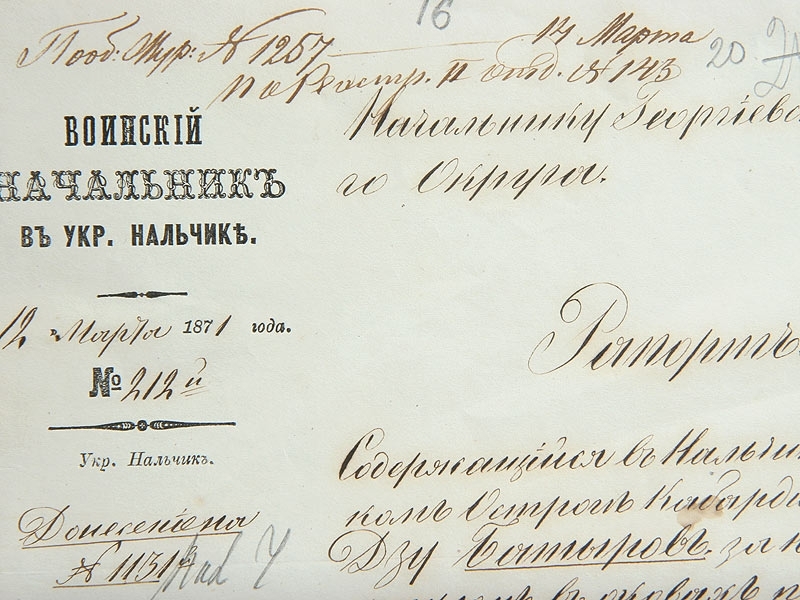 16
Пообщ: Жур: № 1257 17 Марта
20
по Реестр. II отд. № 143
ВОИНСКІЙ
НАЧАЛЬНИКЪ
ВЪ УКР. НАЛЬЧИКѢ.
12 Марта 1871 года.
№ 212й
Укр. Нальчикъ.
Донесеніе на
№ 1131й
Начальнику Георгіевска
го Округа.
Рапортъ.
Содержащійся въ Нальчик
комъ Острогѣ Кабарди
Дзу Батыровъ, за
въ оковахъ